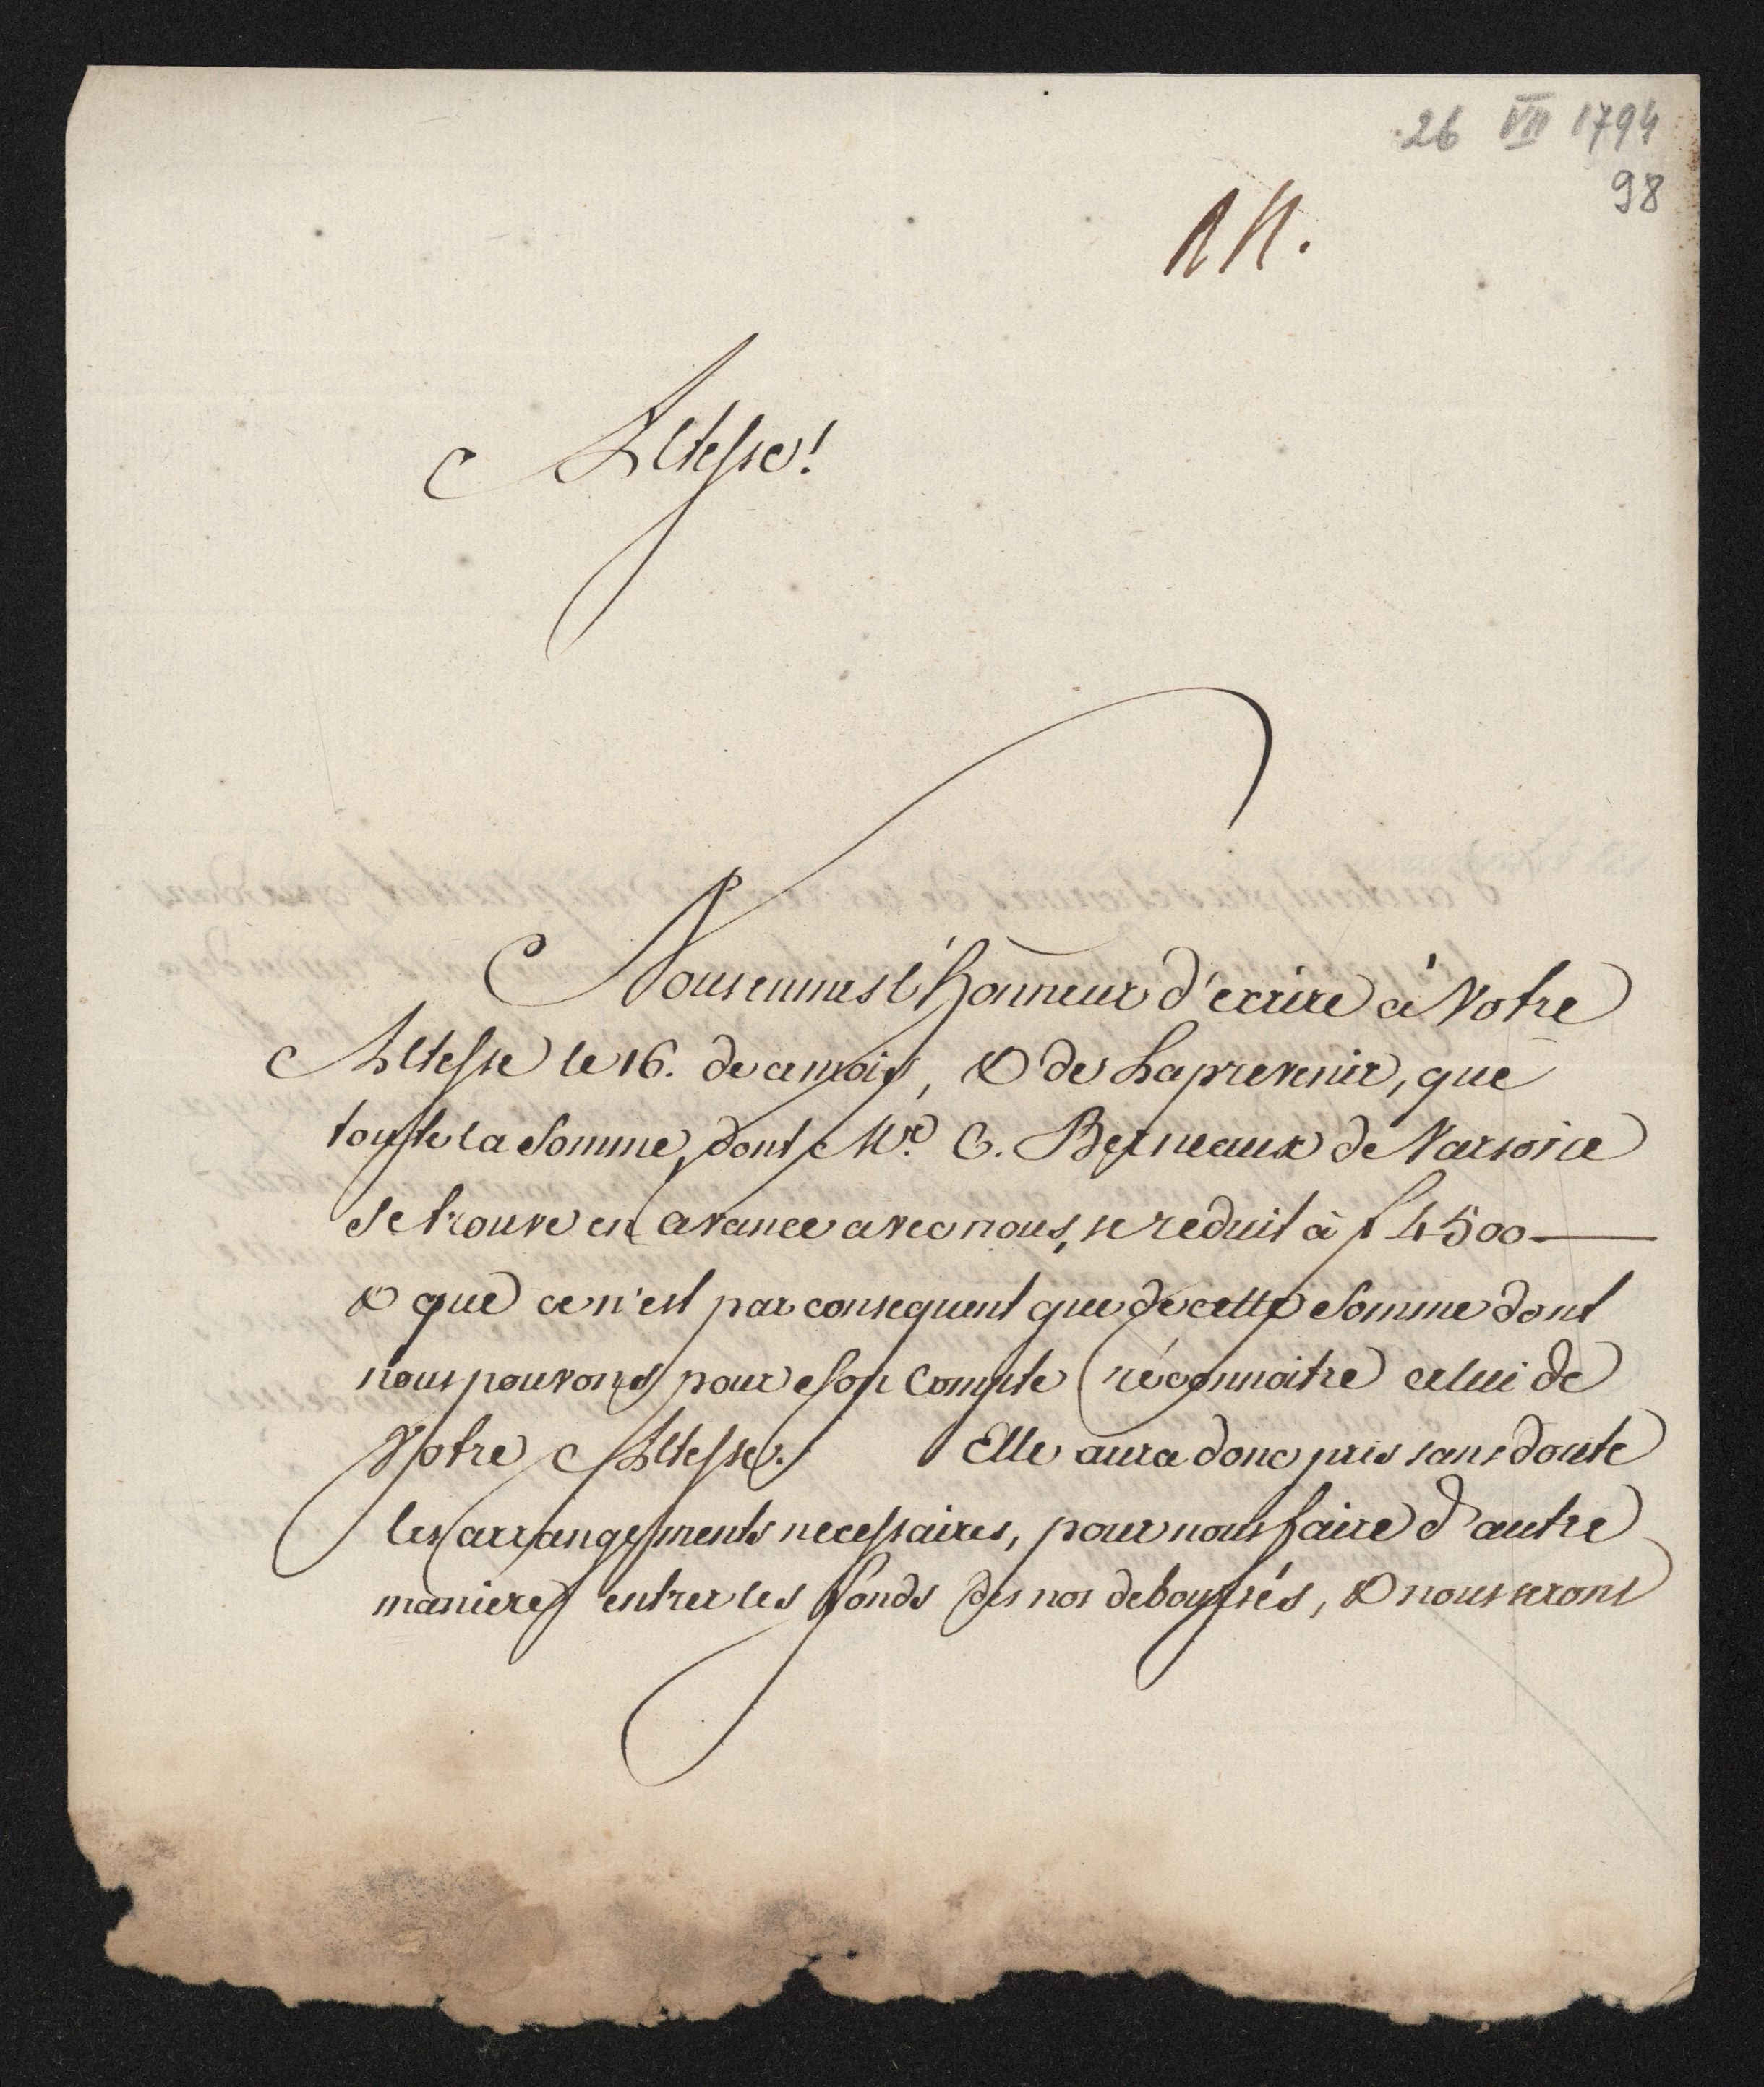 26 VII 1794
98
Altesse!
Nous eumes l'honneur d'ecrire à Votre
Altesse le 16. de ce mois, & de La prevenir, que
toute la Somme, dont Mr. C. Berneaux de Varsovie
Se trouve en avance avec nous, se reduit à f 4500 —
& que ce n'est par consequent que de cette Somme dont
nous pouvons pour Son Compte réconnoitre celui de
Votre Altesse. Elle aura donc pris sans doute
les arrangements necessaires, pour nous faire d'autre
maniere entrer les fonds des nos deboursés, & nous serons